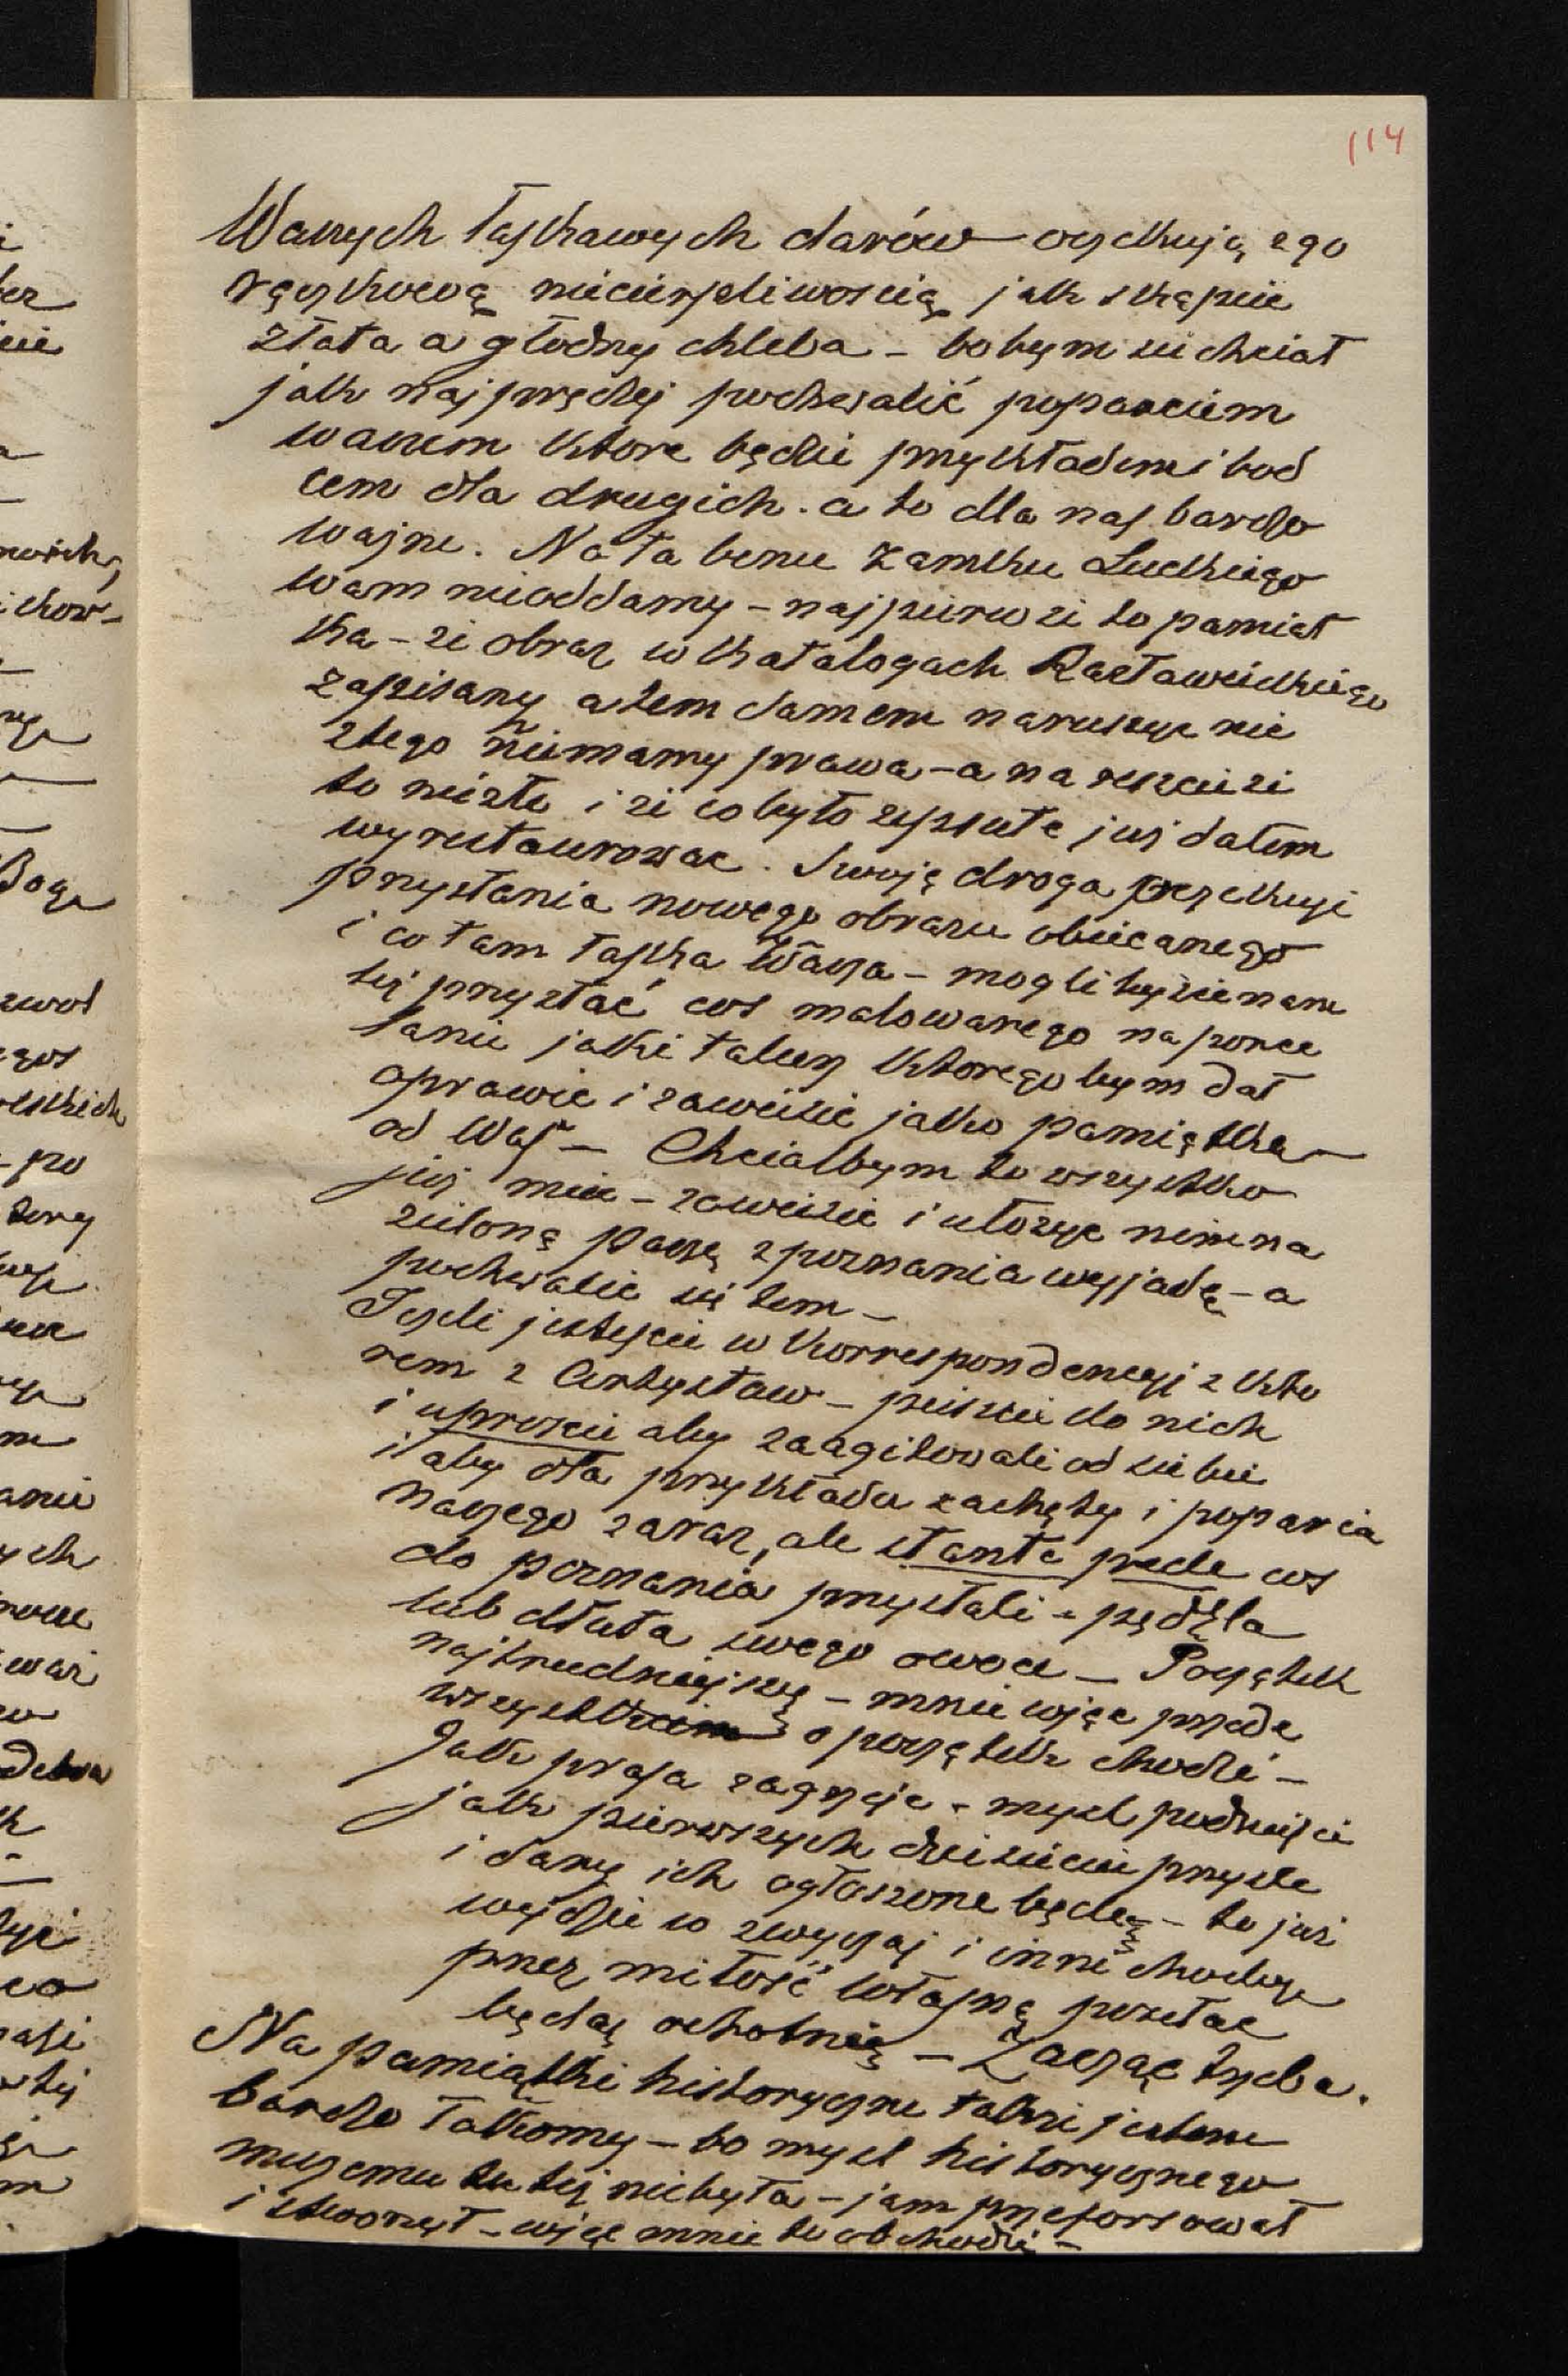 114
Waszych łaskawych darów oczekuję z go
rączkową niecierpliwością jak skąpiec
złota a głodny chleba – bo bym się chciał
jak najprędzej pochwalić poparciem
waszem które będzie przykładem i bod
cem dla drugich . a to dla nas bardzo
ważne . Nota bene Zamku Ludzkiego
wam nieoddamy – najpierw że to pamiąt
ka – że obraz w katalogach Rastawieckiego
zapisany a tem samem naruszyć nic
z tego niemamy prawa – a na reszcie że
to nie złe i że co było zepsute już dałem
wyrestaurować . Swoją drogą oczekuję
przysłania nowego obrazu obiecanego
i co tam łaska Wasza – moglibyście nam
też przysłać coś malowanego na porce
lanie jaki talerz którego bym dał
oprawić i zawiesić jako pamiątkę
od Was – Chciałbym to wszystko
już mieć – zawiesić i ułożyć nim na
zieloną paszę z poznania wyjadę – a
pochwalić się tem –
Jeżeli jesteście w korrespondencyi z któ
rem z Artystów – piszcie do nich
i uproście aby zaagitowali od siebie
i aby dla przykładu zachęty i poparcia
naszego zaraz, ale stante pede coś
do poznania przysłali – pędzla
lub dłuta swego owoce – Początek
najtrudniejszy – mnie więc przede
wszystkiem o początek chodzi –
Jak prasa zagrzeje – myśl podniesie
jak pierwszych dziesięciu przyśle
i dary ich ogłoszone będą – to już
wejdzie w zwyczaj i inni choćby
przez miłość własną posłać
będą ochotnie – Zacząć trzeba .
Na pamiątki historyczne także jestem
bardzo łakomy – bo myśl historycznego
muzeum tutej niebyła – jam przeforsował
i stworzył – więc mnie to obchodzi –